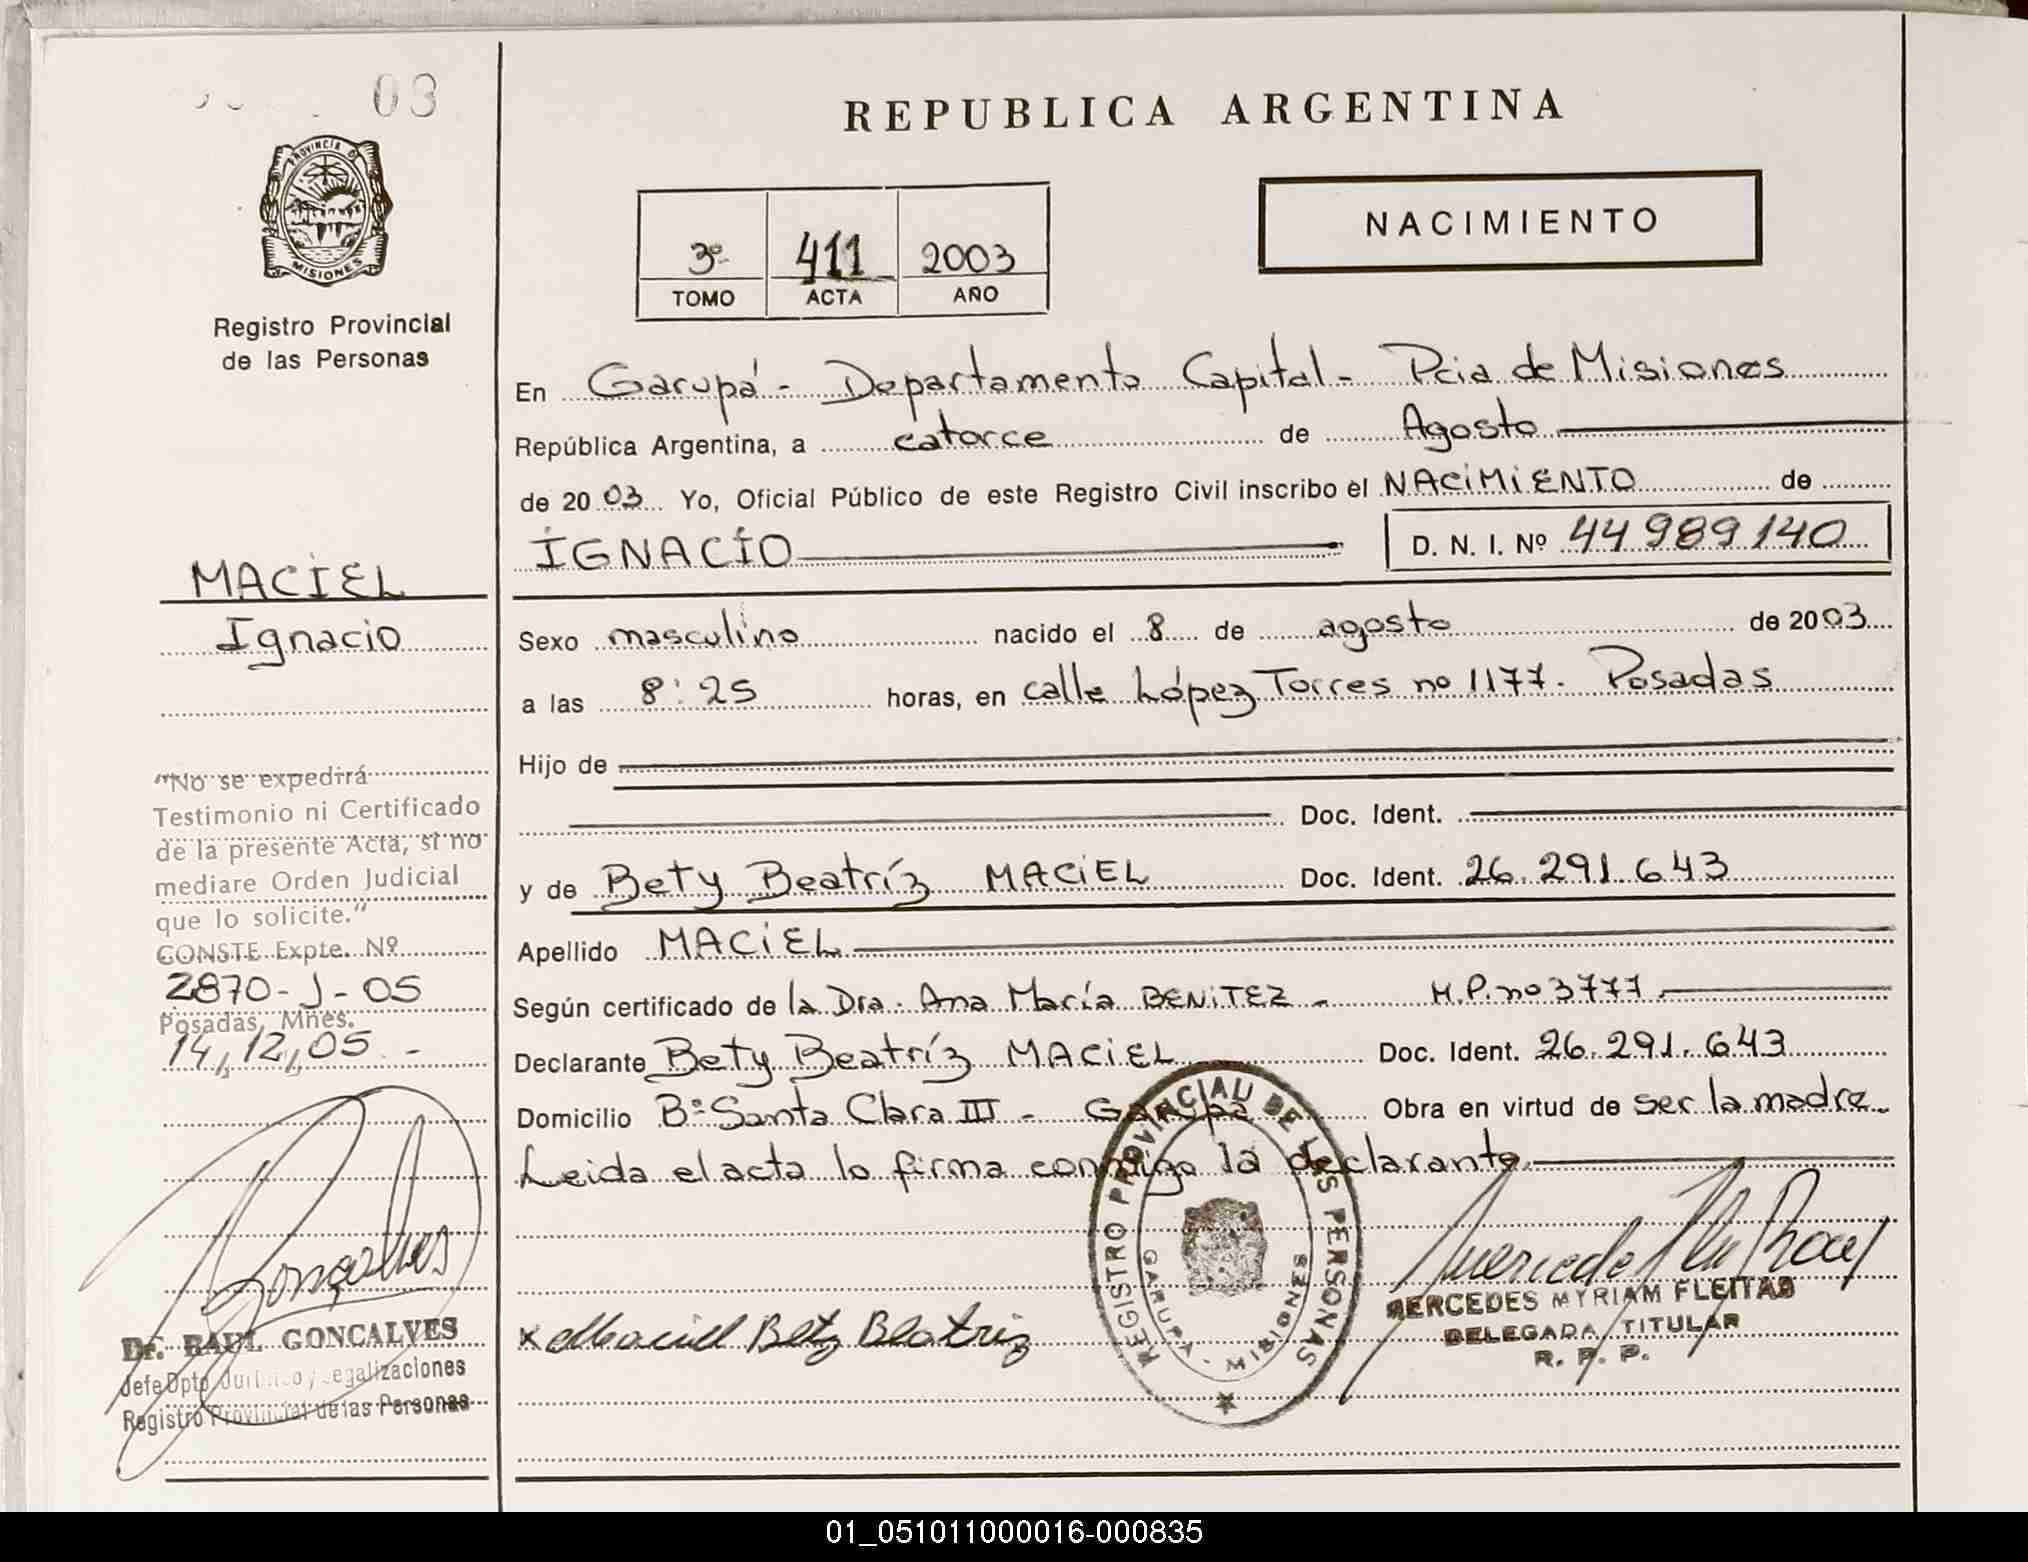 03
PROVINCIA D
MISIONES
Registro Provincial
de las Personas
MACIEL
Ignacio
"No se expedirá
Testimonio ni Certificado
de la presente Acta, si no
mediare Orden Judicial
que lo solicite."
CONSTE Expte. Nº
2870-J-05
Posadas, Mnes.
14,12,05.-
Gonçalves
Dr. RAUL GONCALVES
Jefe Dpto. Jurídico y Legalizaciones
Registro Provincial de las Personas
REPUBLICA ARGENTINA
NACIMIENTO
3º 411 2003
TOMO ACTA AÑO
En Garupá - Departamento Capital - Pcia de Misiones
República Argentina, a catorce de Agosto
de 2003 Yo, Oficial Público de este Registro Civil inscribo el NACIMIENTO de
IGNACIO D. N. I. Nº 44 989 140
Sexo masculino nacido el 8 de agosto de 2003
a las 8:25 horas, en calle López Torres nº 1177. Posadas
Hijo de
Doc. Ident.
y de Bety Beatríz MACIEL Doc. Ident. 26.291.643
Apellido MACIEL
Según certificado de la Dra. Ana María BENITEZ - M.P. nº 3777
Declarante Bety Beatríz MACIEL Doc. Ident. 26.291.643
Domicilio Bº Santa Clara III - Garupá Obra en virtud de ser la madre.
Leida el acta lo firma conmigo la declarante.
REGISTRO PROVINCIAL DE LAS PERSONAS
GARUPA - MISIONES
x Maciel Bety Beatriz
MERCEDES MYRIAM FLEITAS
DELEGADA TITULAR
R. P. P.
01_051011000016-000835